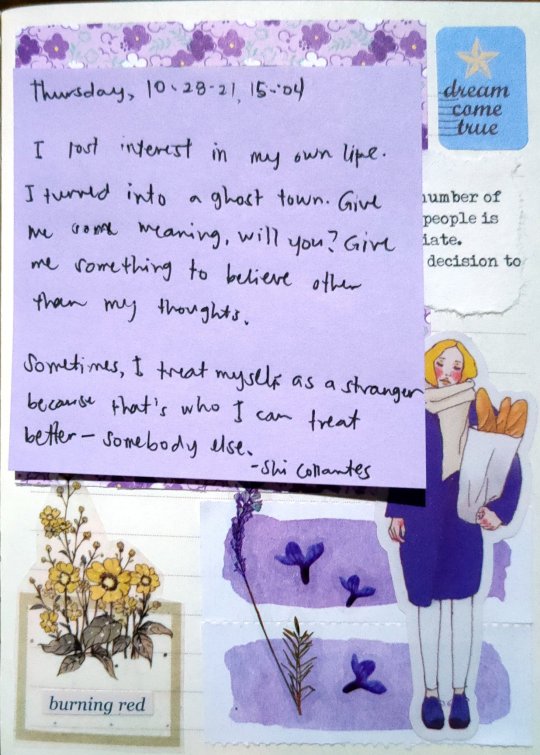 thursday, 10-28-21, 15:04
I lost interest in my own life.
I turned into a ghost town. Give
me some meaning, will you? Give
me something to believe other
than my thoughts.
Sometimes, I treat myself as a stranger
because that's who I can treat
better – somebody else.
-Shi Collantes
dream
come
true
number of
people is
iate.
decision to
burning red